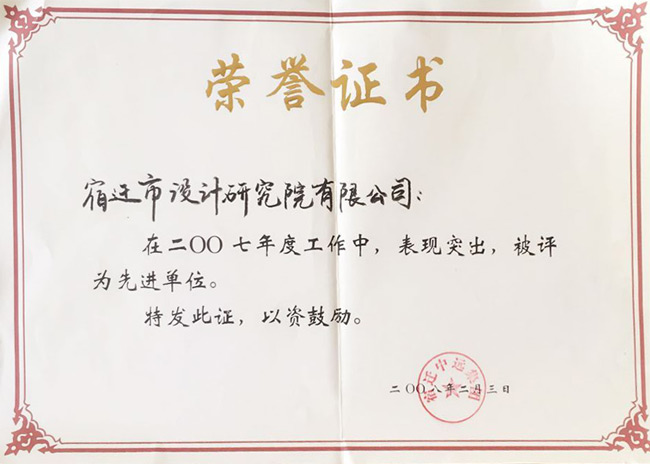 荣誉证书
宿迁市设计研究院有限公司：
在二〇〇七年度工作中，表现突出，被评
为先进单位。
特发此证，以资鼓励。
二〇〇八年二月三日
宿迁中运集团